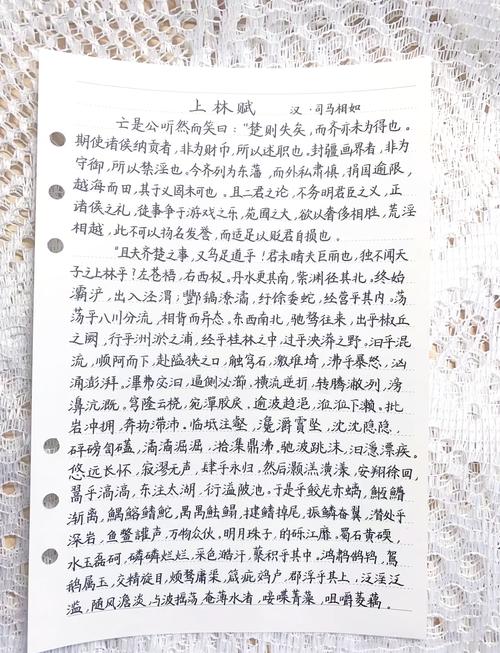 上林赋 汉·司马相如
亡是公听然而笑曰："楚则失矣，而齐亦未为得也。
期使诸侯纳贡者，非为财币，所以述职也。封疆画界者，非为
守御，所以禁淫也。今齐列为东藩，而外私肃慎，捐国逾限，
越海而田，其于义固未可也。且二君之论，不务明君臣之义，正
诸侯之礼，徒事争于游戏之乐，苑囿之大，欲以奢侈相胜，荒淫
相越，此不可以扬名发誉，而适足以贬君自损也。
"且夫齐楚之事，又乌足道乎！君未睹夫巨丽也，独不闻天
子之上林乎？左苍梧，右西极。丹水更其南，紫渊径其北。终始
灞浐，出入泾渭；酆镐潦潏，纡徐委蛇，经营乎其内。荡
荡乎八川分流，相背而异态。东西南北，驰骛往来，出乎椒丘
之阙，行乎洲淤之浦，经乎桂林之中，过乎泱漭之野。汩乎混
流，顺阿而下，赴隘狭之口，触穹石，激堆埼，沸乎暴怒，汹
涌澎湃。滭弗宓汩，逼侧泌瀄，横流逆折，转腾潎冽，滂
濞沆溉。穹隆云桡，宛潬胶戾，逾波趋浥，涖涖下濑。批
岩冲拥，奔扬滞沛。临坻注壑，瀺灂霣坠，沈沈隐隐，
砰磅訇礚，潏潏淈淈，湁潗鼎沸。驰波跳沫，汩㴔漂疾。
悠远长怀，寂漻无声，肆乎永归。然后灏溔潢漾，安翔徐回，
翯乎滈滈，东注太湖，衍溢陂池。于是乎蛟龙赤螭，䱭䲛
渐离，鰅鰫鳍鮀，禺禺魼鳎，揵鳍掉尾，振鳞奋翼，潜处乎
深岩，鱼鳖讙声，万物众伙。明月珠子，的砾江靡。蜀石黄碝，
水玉磊砢，磷磷烂烂，采色澔汗，藂积乎其中。鸿鹔鹄鸨，鴐
鹅属玉，交精旋目，烦鹜庸渠，箴疵䴔卢，群浮乎其上，泛淫泛
滥，随风澹淡，与波摇荡，奄薄水渚，唼喋菁藻，咀嚼菱藕。